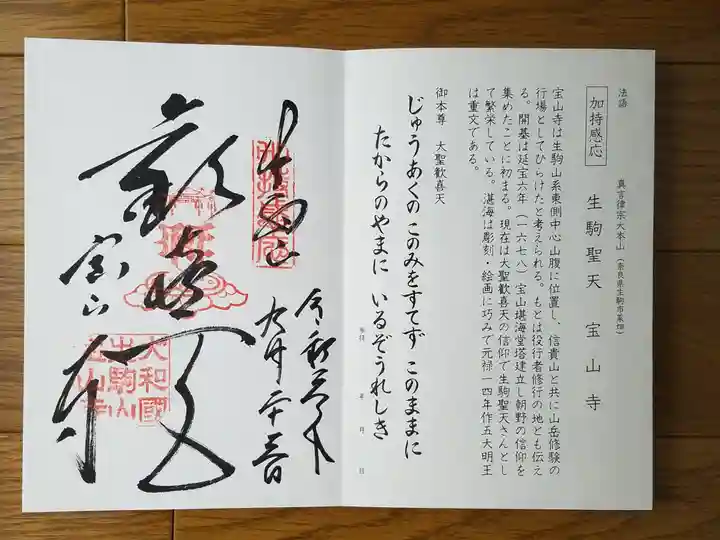 法語
加持感応
真言律宗大本山 (奈良県生駒市菜畑)
生駒聖天 宝山寺
宝山寺は生駒山系東側中心山腹に位置し、信貴山と共に山岳修験の
行場としてひらけたと考えられる。もとは役行者修行の地とも伝え
る。開基は延宝六年(一六七八)宝山堪海堂塔建立し朝野の信仰を
集めたことに初まる。現在は大聖歓喜天の信仰で生駒聖天さんとし
て繁栄している。湛海は彫刻・絵画に巧みで元禄一四年作五大明王
は重文である。
御本尊 大聖歓喜天
じゅうあくの このみをすてず このままに
たからのやまに いるぞうれしき
参拝 年 月 日
生駒山
加持感応
歓喜天
宝山寺
大和國
生駒山
宝山寺
令和三年
九月二十三日